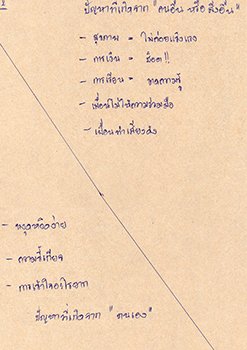 ปัญหาที่เกิดจาก "คนอื่น หรือ สิ่งอื่น"
- สุขภาพ = ไม่ค่อยแข็งแรง
- การเงิน = ช็อต!!
- การเรียน = ขาดความรู้
- เพื่อนไม่ให้ความร่วมมือ
- เพื่อนทำเสียงดัง
- หงุดหงิดง่าย
- ความขี้เกียจ
- การเข้าใจอะไรยาก
ปัญหาที่เกิดจาก "ตนเอง"